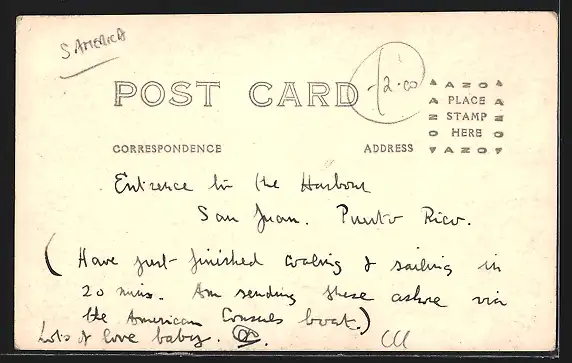 S AMERICA
12.00
POST CARD
AZO
PLACE
STAMP
HERE
AZO
CORRESPONDENCE
ADDRESS
Entrance to the Harbour
San Juan. Puerto Rico.
(Have just finished coaling & sailing in
20 mins. Am sending these ashore via
the American Consuls boat.)
Lots of love baby.